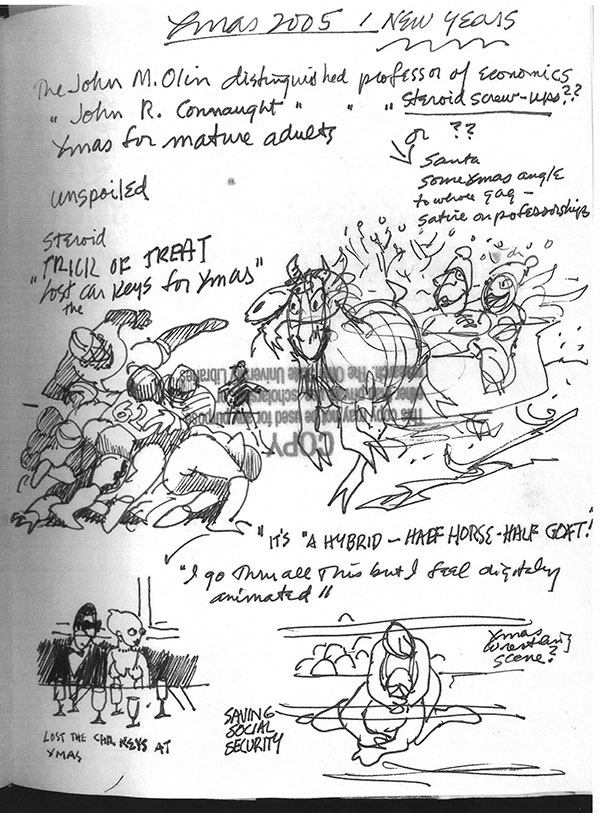 Xmas 2005 / NEW YEARS
The John M. Olin distinguished professor of economics
" John R. Connaught " " " Steroid screw-ups??
Xmas for mature adults
or ??
Santa
some Xmas angle
to whole gag -
satire on professorships
unspoiled
steroid
TRICK OR TREAT
"lost car keys for Xmas"
the
62
This copy may not be used for any purpose
other than private study, scholarship or
research. The Ohio State University Libraries
COPY
"IT'S "A HYBRID - HALF HORSE - HALF GOAT!"
"I go thru all this but I feel digitally
animated"
Xmas
wrestling
scene?
SAVING
SOCIAL
SECURITY
LOST THE CAR KEYS AT
XMAS